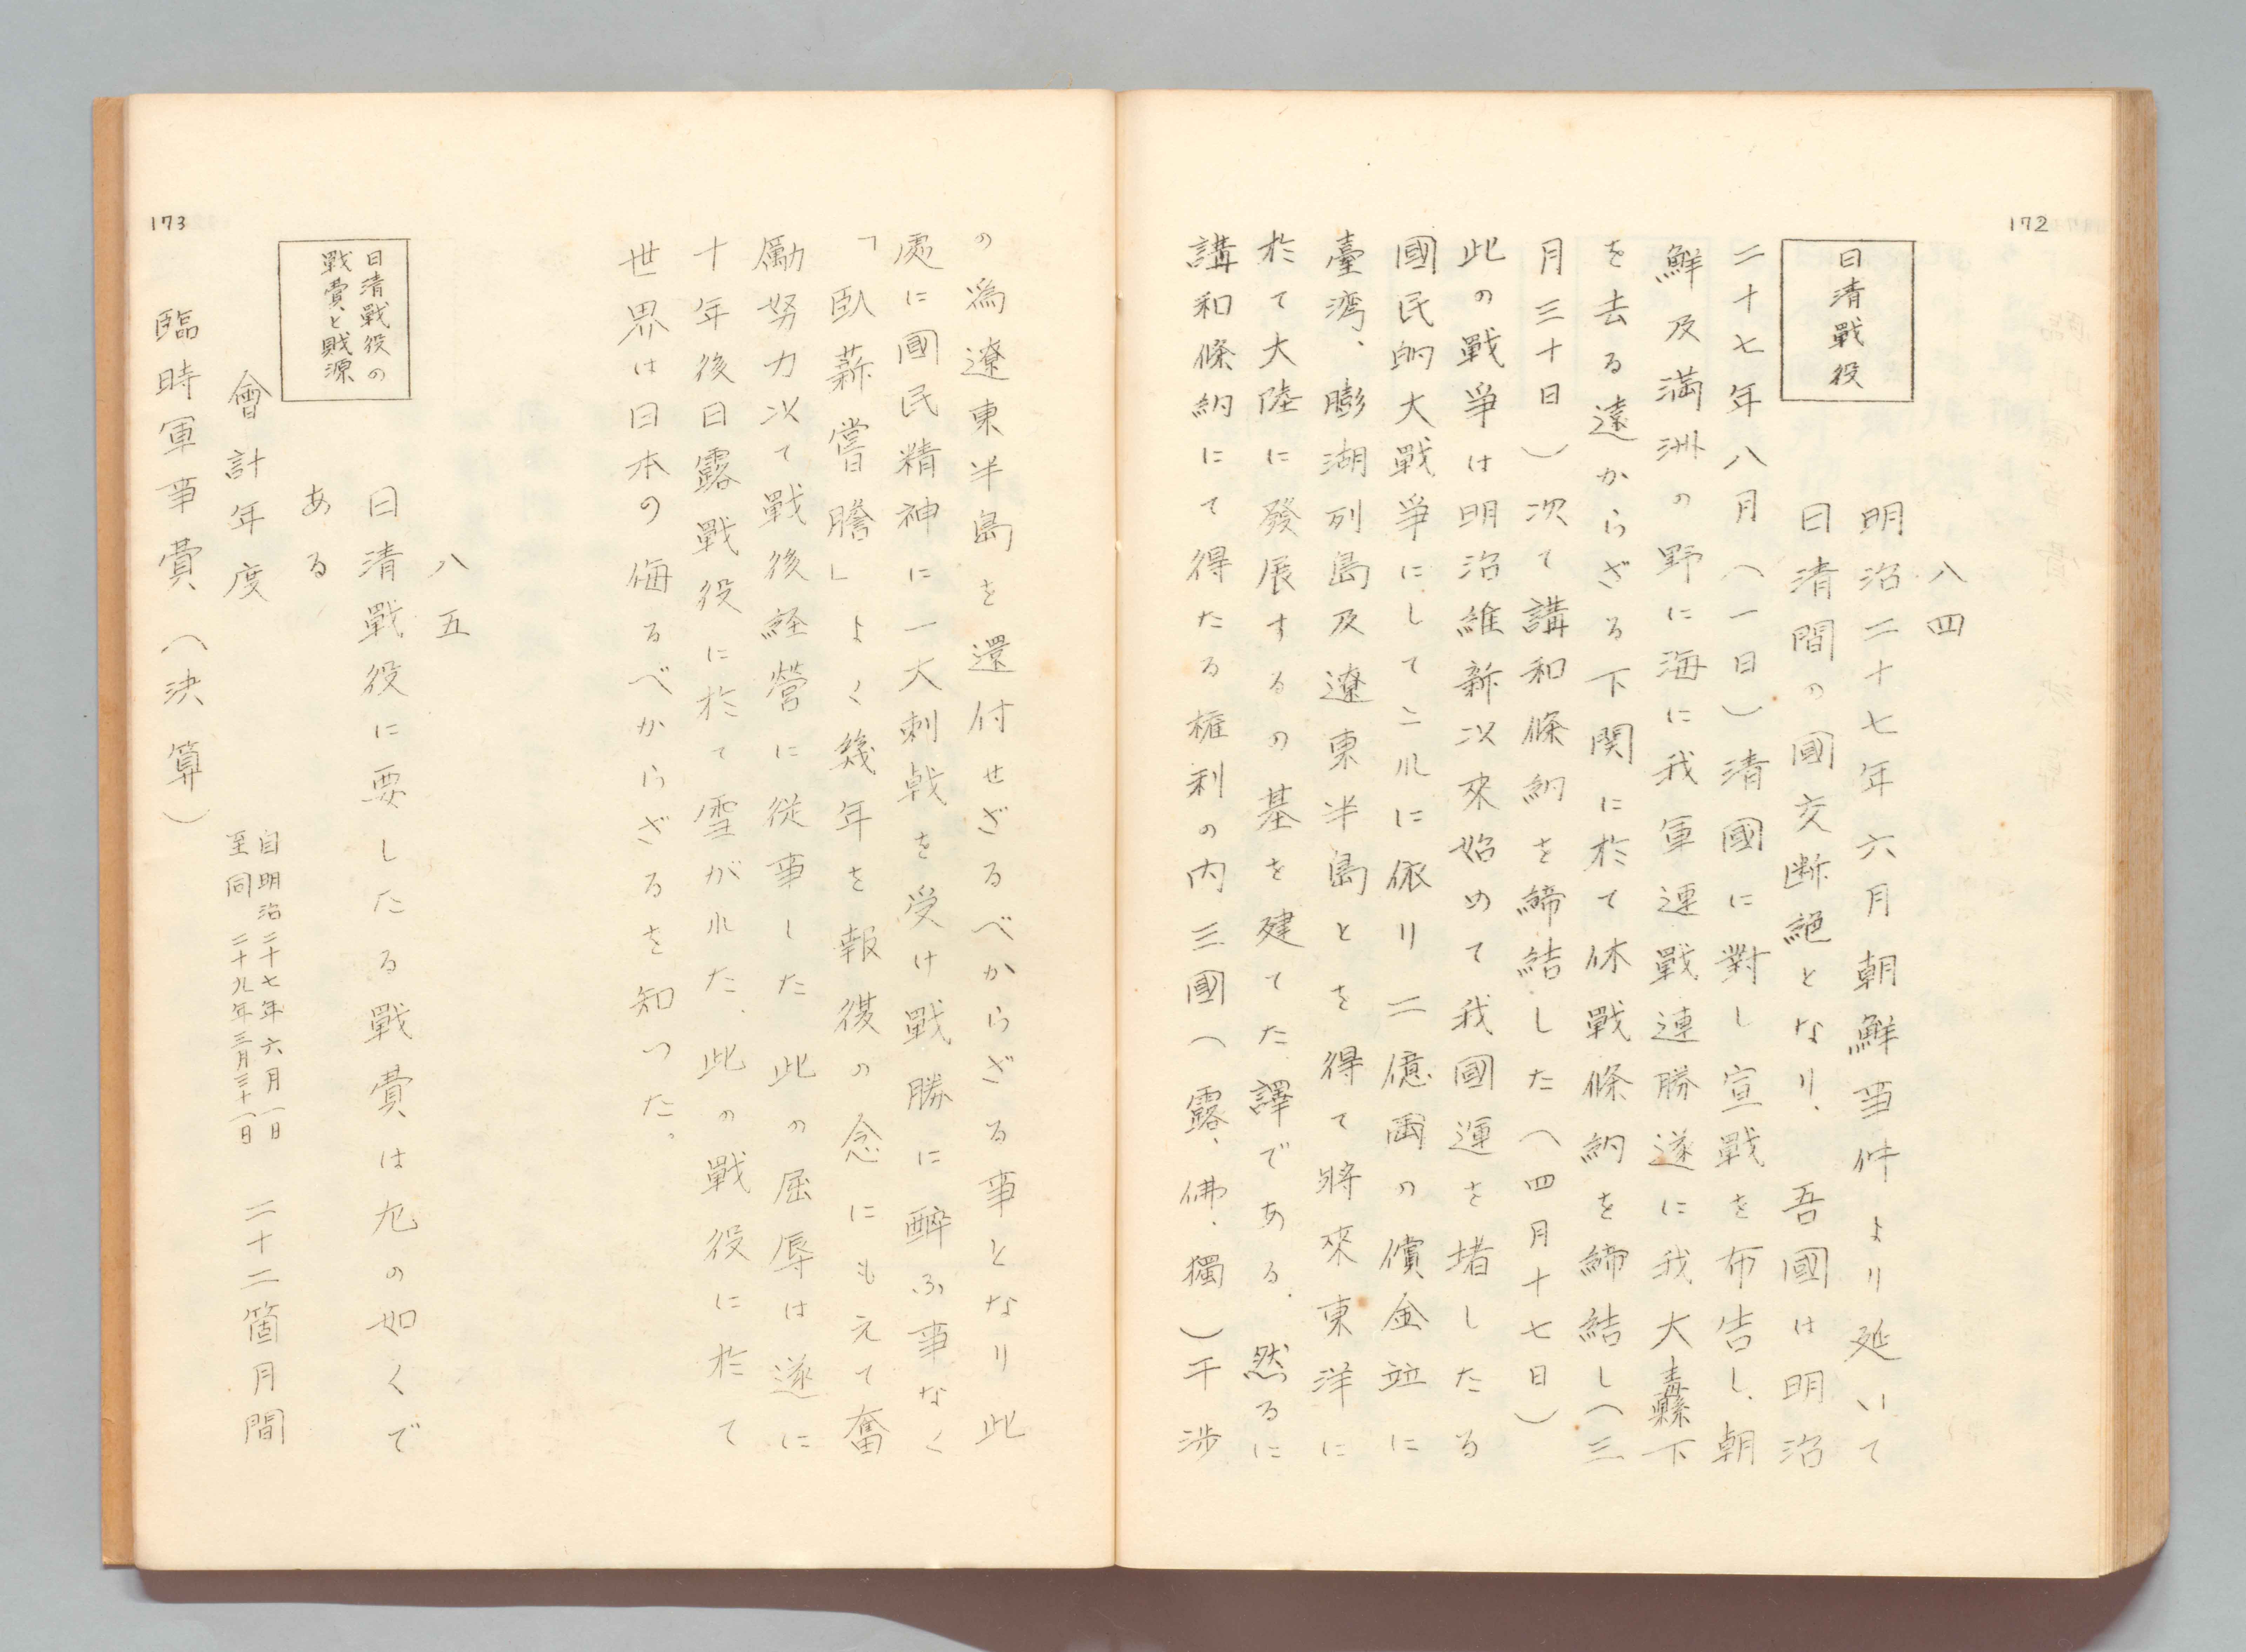 172
八四
日清戰役
明治二十七年六月朝鮮事件より延いて
日清間の國交断絶となり、吾國は明治
二十七年八月(一日)清國に對し宣戰を布告し、朝
鮮及満洲の野に海に我軍連戰連勝遂に我大纛下
を去る遠からざる下関に於て休戰條約を締結し(三
月三十日)次て講和條約を締結した(四月十七日)
此の戰爭は明治維新以來始めて我國運を堵したる
國民的大戰爭にして之れに依り二億両の償金竝に
臺湾、膨湖列島及遼東半島とを得て將來東洋に
於て大陸に發展するの基を建てた譯である、然るに
講和條約にて得たる権利の内三國(露、佛、獨)干渉
の為遼東半島を還付せざるべからざる事となり此
處に國民精神に一大刺戟を受け戰勝に醉ふ事なく
「臥薪嘗膽」よく幾年を報復の念にもえて奮
勵努力以て戰後経營に従事した此の屈辱は遂に
十年後日露戰役に於て雪がれた、此の戰役に於て
世界は日本の侮るべからざるを知つた。
173
八五
日清戰役の
戰費と財源
日清戰役に要したる戰費は左の如くで
ある
會計年度
自明治二十七年六月一日
至同二十九年三月三十一日
二十二箇月間
臨時軍事費(決算)